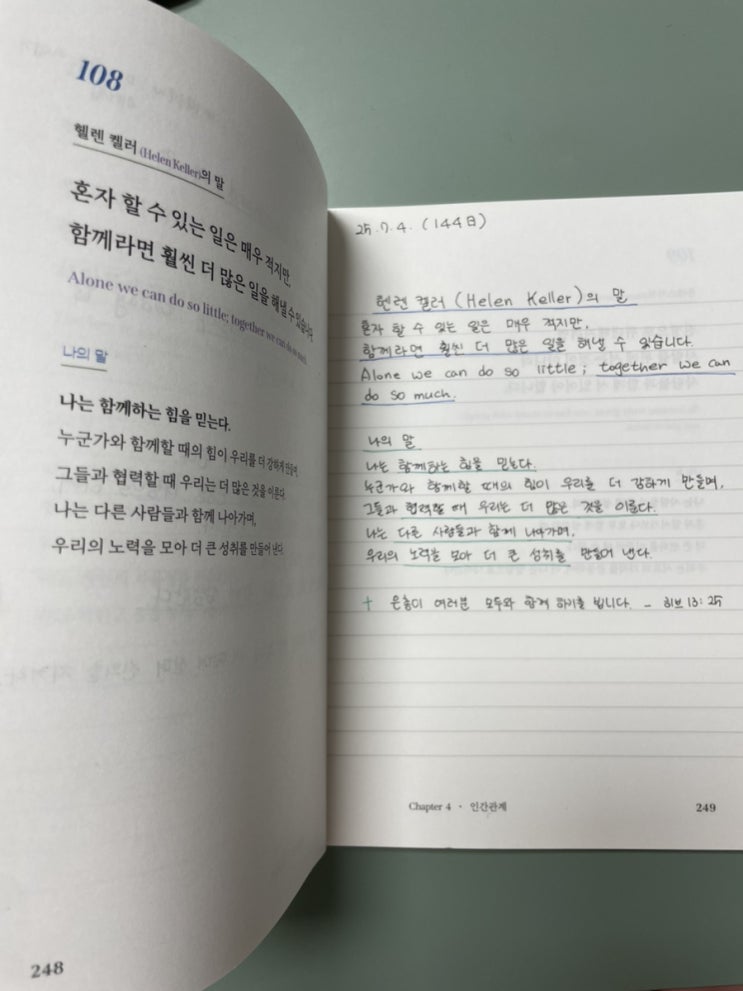 108
헬렌 켈러(Helen Keller)의 말
혼자 할 수 있는 일은 매우 적지만,
함께라면 훨씬 더 많은 일을 해낼 수 있습니다.
Alone we can do so little; together we can do so much.
나의 말
나는 함께하는 힘을 믿는다.
누군가와 함께할 때의 힘이 우리를 더 강하게 만들며,
그들과 협력할 때 우리는 더 많은 것을 이룬다.
나는 다른 사람들과 함께 나아가며,
우리의 노력을 모아 더 큰 성취를 만들어 낸다.
248
25.7.4. (144日)
헬렌 켈러 (Helen Keller)의 말
혼자 할 수 있는 일은 매우 적지만,
함께라면 훨씬 더 많은 일을 해낼 수 있습니다.
Alone we can do so little; together we can
do so much.
나의 말
나는 함께하는 힘을 믿는다.
누군가와 함께할 때의 힘이 우리를 더 강하게 만들며,
그들과 협력할 때 우리는 더 많은 것을 이룬다.
나는 다른 사람들과 함께 나아가며,
우리의 노력을 모아 더 큰 성취를 만들어 낸다.
† 은총이 여러분 모두와 함께 하기를 빕니다. - 히브 13:25
Chapter 4 · 인간관계
249